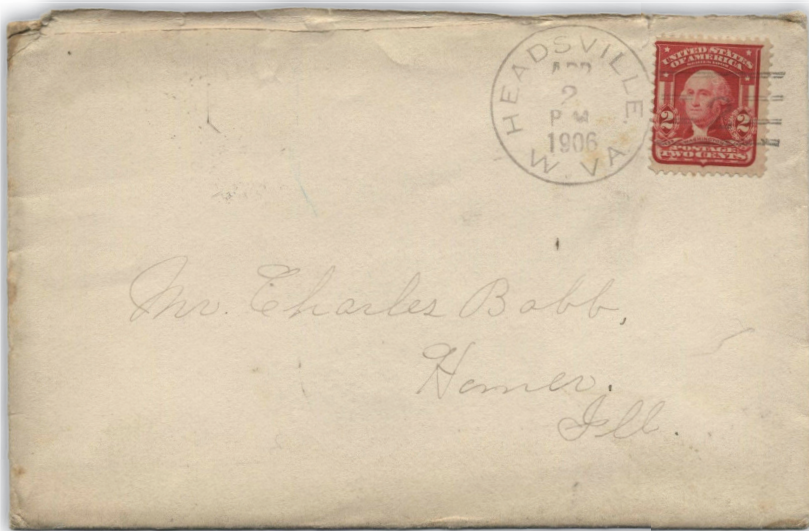 HEADSVILLE
APR
2
P M
1906
W. VA.
UNITED STATES
OF AMERICA
2 2
POSTAGE
TWO CENTS
Mr. Charles Babb,
Homer.
Ill.